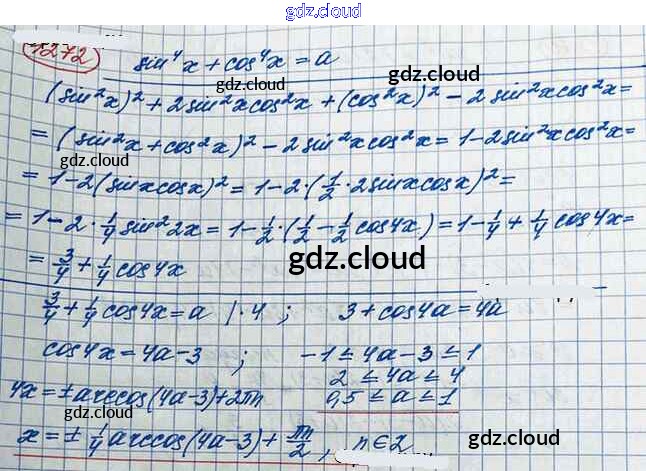 gdz.cloud
1272 sin⁴x + cos⁴x = a
gdz.cloud
(sin²x)² + 2sin²xcos²x + (cos²x)² - 2sin²xcos²x =
= (sin²x + cos²x)² - 2sin²xcos²x = 1 - 2sin²xcos²x =
gdz.cloud
= 1 - 2(sinxcosx)² = 1 - 2·(1/2·2sinxcosx)² =
gdz.cloud
= 1 - 2·1/4 sin²2x = 1 - 1/2·(1/2 - 1/2cos4x) = 1 - 1/4 + 1/4cos4x =
= 3/4 + 1/4cos4x
gdz.cloud
3/4 + 1/4cos4x = a |·4 ; 3 + cos4a = 4a
cos4x = 4a - 3 ; -1 ≤ 4a - 3 ≤ 1
2 ≤ 4a ≤ 4
4x = ± arccos(4a-3) + 2πn 0,5 ≤ a ≤ 1
gdz.cloud
gdz.cloud
x = ± 1/4 arccos(4a-3) + πn/2, n∈Z